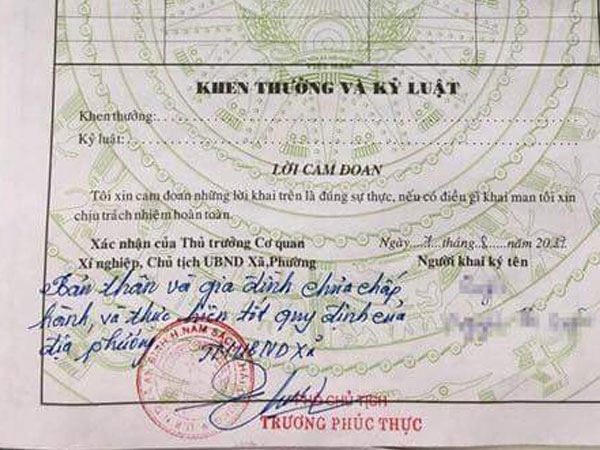 KHEN THƯỞNG VÀ KỶ LUẬT
Khen thưởng:
Kỷ luật:
LỜI CAM ĐOAN
Tôi xin cam đoan những lời khai trên là đúng sự thực, nếu có điều gì khai man tôi xin
chịu trách nhiệm hoàn toàn.
Xác nhận của Thủ trưởng Cơ quan
Xí nghiệp, Chủ tịch UBND Xã,Phường
Ngày tháng 8 năm 20
Người khai ký tên
Bản thân và gia đình chưa chấp
hành, và thực hiện tốt quy định của
địa phương
TM UBND Xã
PHÓ CHỦ TỊCH
TRƯƠNG PHÚC THỰC